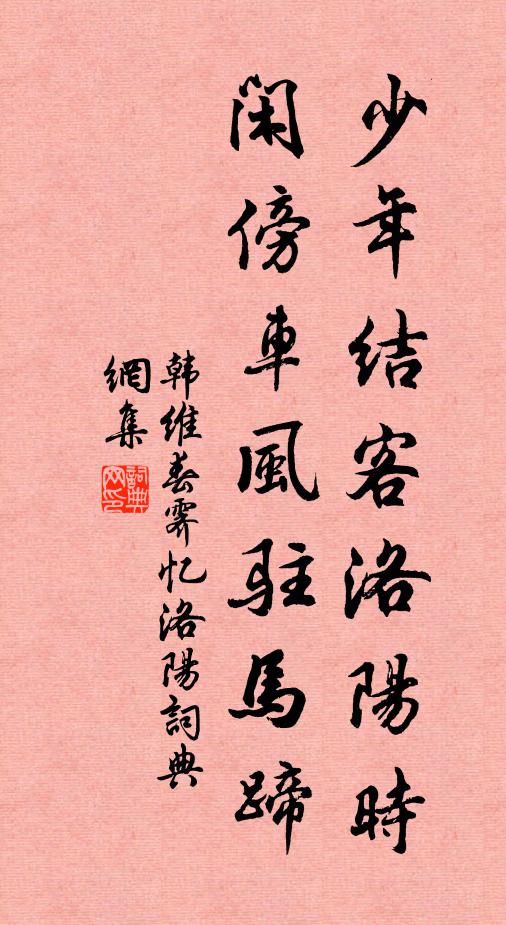 少年结客洛陽時
闲傍車風駐馬蹄
韩维春霽忆洛陽詞典
網集
詞典网印